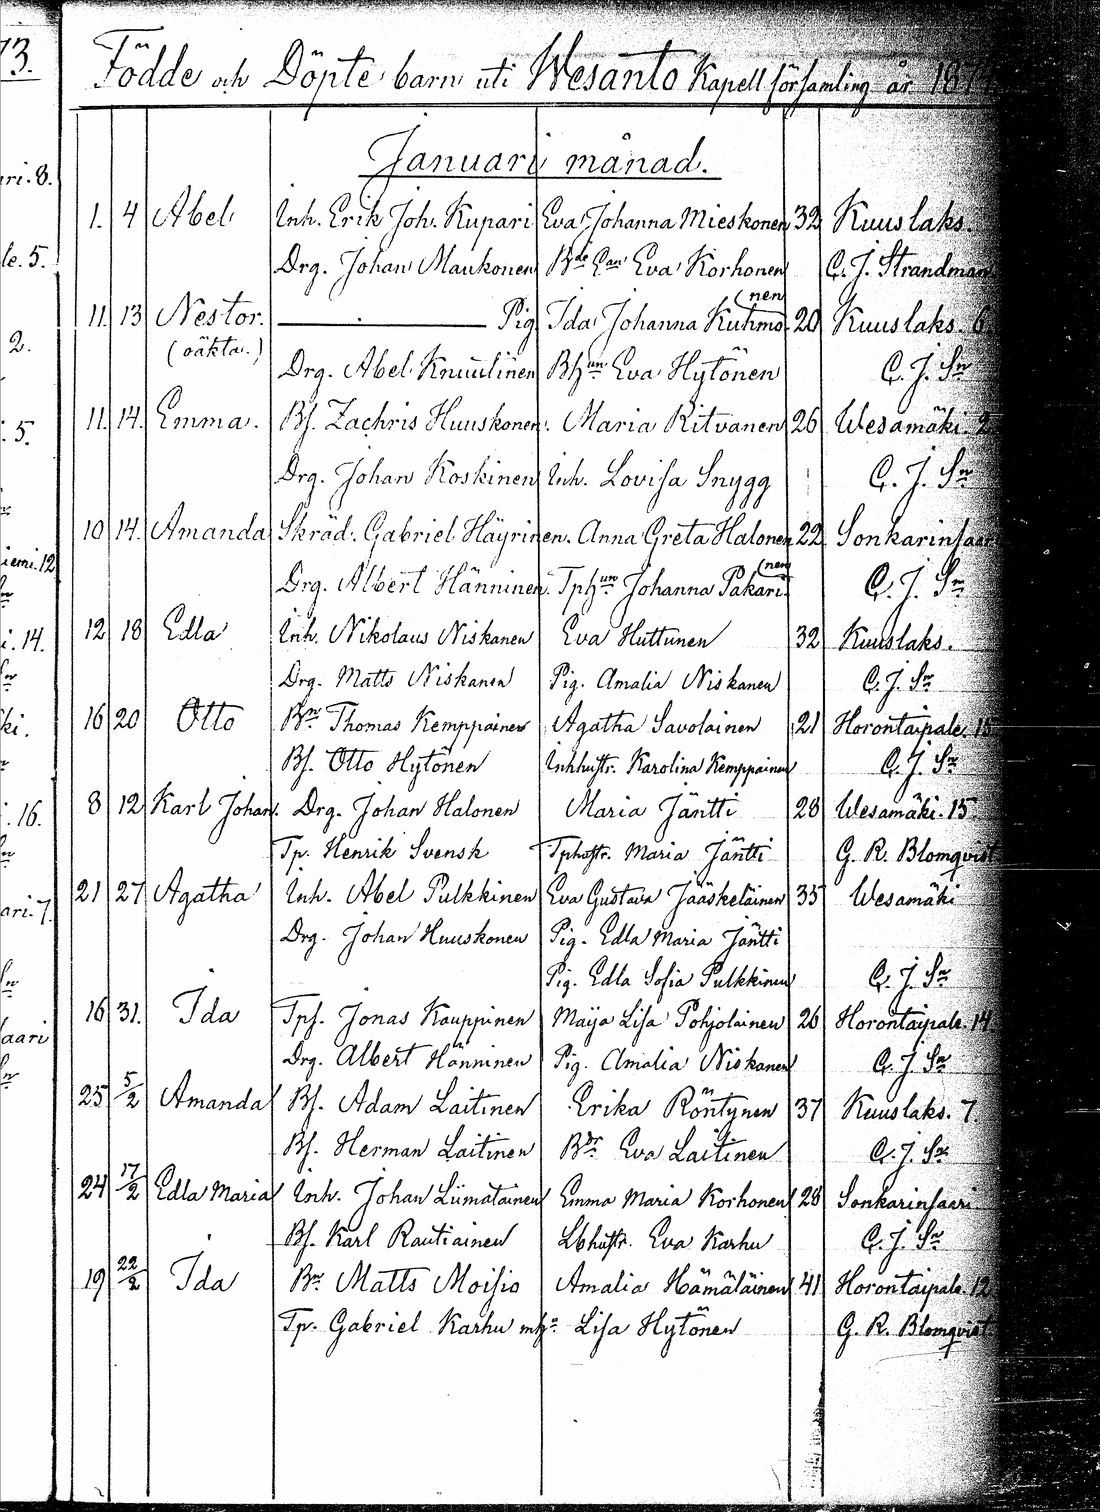 73.
Födde och Döpte barn uti Wesanto Kapell församling år 187
Januari månad.
ri. 8.
1. 4 Abel Inh. Erik Joh. Kupari Eva Johanna Mieskonen 32 Kuuslaks.
le. 5. Drg. Johan Maukonen Bde Enn Eva Korhonen C. J. Strandman
(nen
11. 13 Nestor. Pig. Ida Johanna Kuhmo 20 Kuuslaks. 6
2. (oäkta.) Drg. Abel Knuutinen Bhun Eva Hytönen C. J. Sn
i. 5. 11. 14. Emma. Bf. Zachris Huuskonen. Maria Ritvanen 26 Wesamäki. 2
Drg. Johan Koskinen Inh. Lovisa Snygg C. J. Sn
10 14. Amanda Skräd. Gabriel Häyrinen. Anna Greta Halonen 22 Sonkarinsaari
(nen
iemi. 12 Drg. Albert Hänninen. Tphun Johanna Pakari C. J. Sn
i. 14. 12 18 Edla Inh. Nikolaus Niskanen Eva Huttunen 32 Kuuslaks.
Drg. Matts Niskanen Pig. Amalia Niskanen C. J. Sn
ki. 16 20 Otto Bn Thomas Kemppainen Agatha Savolainen 21 Horontaipale. 15
Bf. Otto Hytönen Inhhustr. Karolina Kemppainen C. J. Sn
. 16. 8 12 Karl Johan. Drg. Johan Halonen Maria Jäntti 28 Wesamäki. 15.
Tp. Henrik Svensk Tphustr. Maria Jäntti G. R. Blomqvist
ari. 7. 21 27 Agatha Inh. Abel Pulkkinen Eva Gustava Jääskeläinen 35 Wesamäki
Drg. Johan Huuskonen Pig. Edla Maria Jäntti
Pig. Edla Sofia Pulkkinen C. J. Sn
aari 16 31. Ida Tpf. Jonas Kauppinen Maija Lisa Pohjolainen 26 Horontaipale. 14
Drg. Albert Hänninen Pig. Amalia Niskanen C. J. Sn
25 5/2 Amanda Bf. Adam Laitinen Erika Röntynen 37 Kuuslaks. 7.
Bf. Herman Laitinen Bdr Eva Laitinen C. J. Sn
24 17/2 Edla Maria Inh. Johan Liimatainen Emma Maria Korhonen 28 Sonkarinsaari
Bf. Karl Rautiainen Lbhustr. Eva Karhu C. J. Sn
19 22/2 Ida Bn Matts Moisio Amalia Hämäläinen 41 Horontaipale. 12
Tp. Gabriel Karhu mhn Lisa Hytönen G. R. Blomqvist